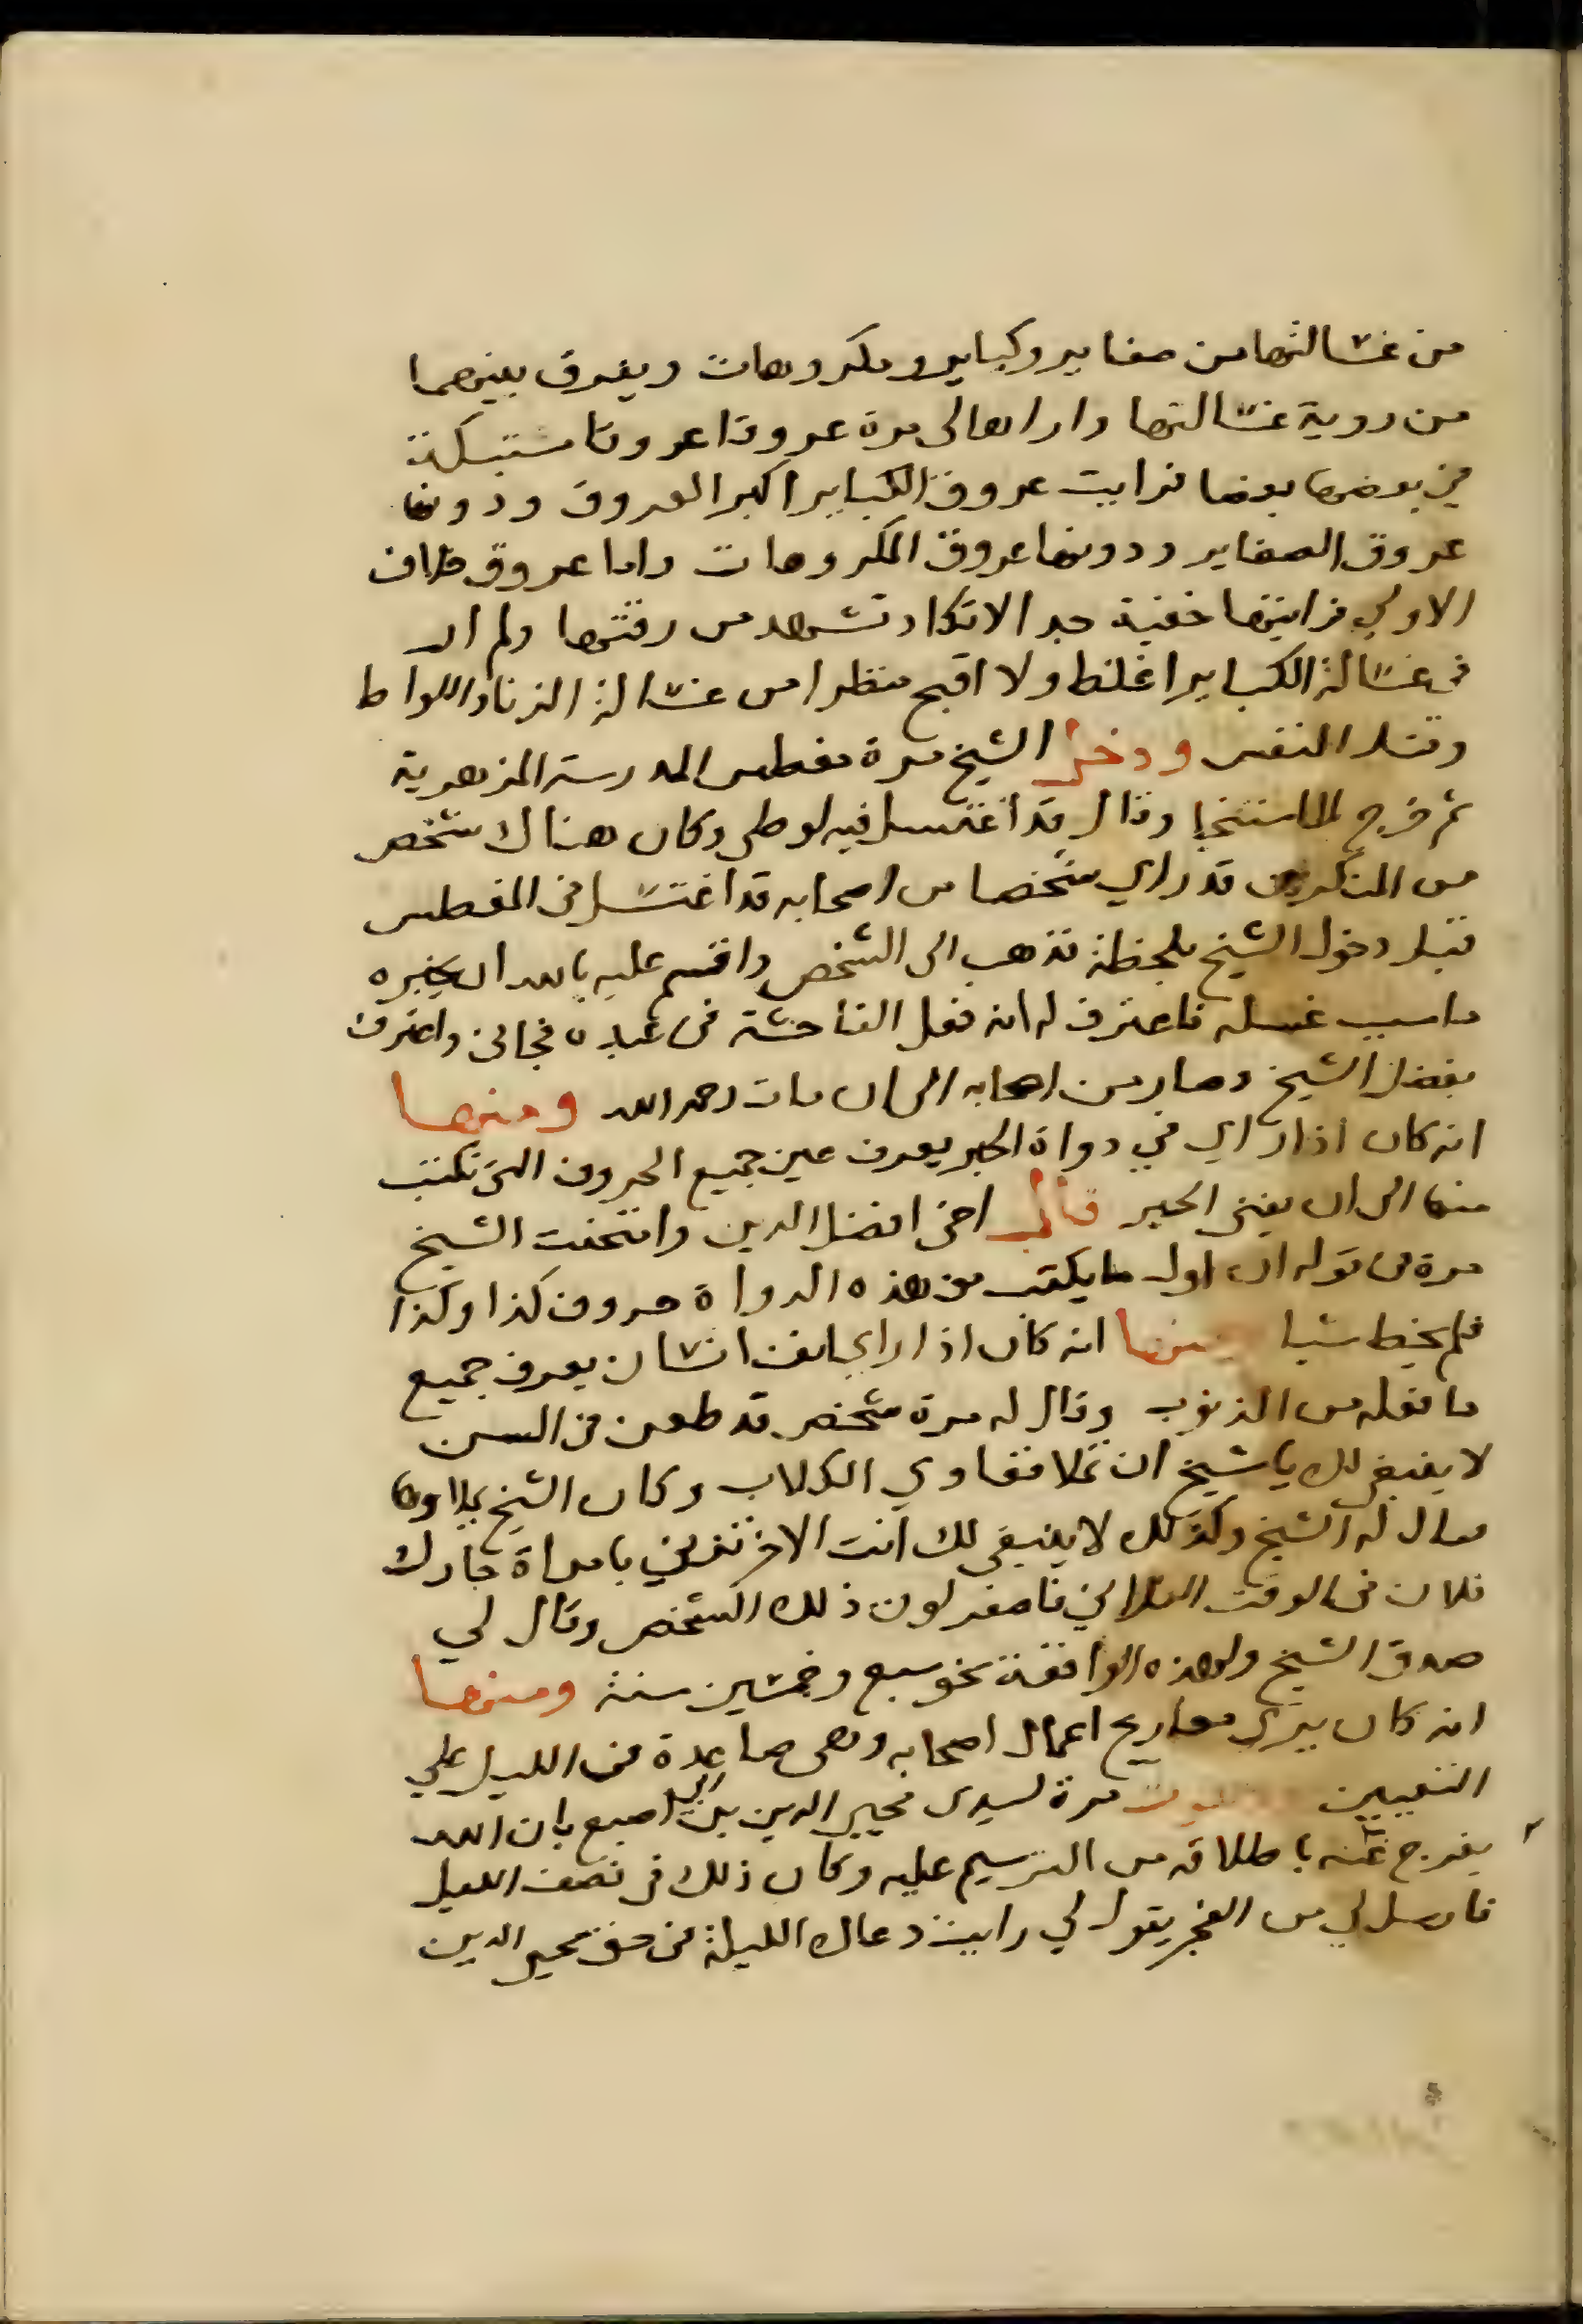 من غسالتها من صغاير وكباير ومكروهات ويفرق بينهما
من روية غسالتها وارانها لى مرة عروقا عروقا مشتبكة
في بعضها بعضا فرايت عروق الكباير اكبر العروق ودونها
عروق الصغاير ودونها عروق المكروهات واما عروق خلاف
الاولي فرايتها خفية جدا لا تكاد تشهد من رقتها ولم ار
في غسالة الكباير اغلظ ولا اقبح منظرا من غسالة الزنا واللواط
وقتل النفس ودخل الشيخ مرة مغطس المدرسة المزهرية
ثم خرج وقال قد اغتسل فيه لوطى وكان هناك شخص
من المنكرين قد راي شخصا من اصحابه قد اغتسل في المغطس
قبل دخول الشيخ بلحظة فذهب الى الشخص واقسم عليه بالله ان يخبره
ما سبب غسله فاعترف له انه فعل الفاحشة في عبده فجانى واعترف
بفضل الشيخ وصار من اصحابه الى ان مات رحمه الله ومنها
انه كان اذا راي في دواة الحبر يعرف عين جميع الحروف التى تكتب
منها الى ان يفنى الحبر قال اخى افضل الدين وامتحنت الشيخ
مرة في قوله ان اول ما يكتب من هذه الدواة حروف كذا وكذا
فلم يخط شيا ومنها انه كان اذا راي انف انسان يعرف جميع
ما فعله من الذنوب وقال له مرة شخص قد طعن في السن
لا ينبغى لك يا شيخ ان تملا فساقي الكلاب وكان الشيخ يملاوها
فقال له الشيخ وكذلك لا ينبغى لك انت الاخر تزني بامراة جارك
فلان في الوقت الفلاني فاصفر لون ذلك الشخص وقال لي
صدق الشيخ ولهذه الواقعة نحو سبع وخمسين سنة ومنها
انه كان يرى معاريج اعمال اصحابه وهى صاعدة من الليل علي
التعيين مرة لسيدى محيي الدين بن ابى اصبع بان الله
يفرج عنه باطلاقه من الترسيم عليه وكان ذلك فى نصف الليل
فارسل لي من الفجر يقول لي رايت دعاك الليلة في حق محيي الدين